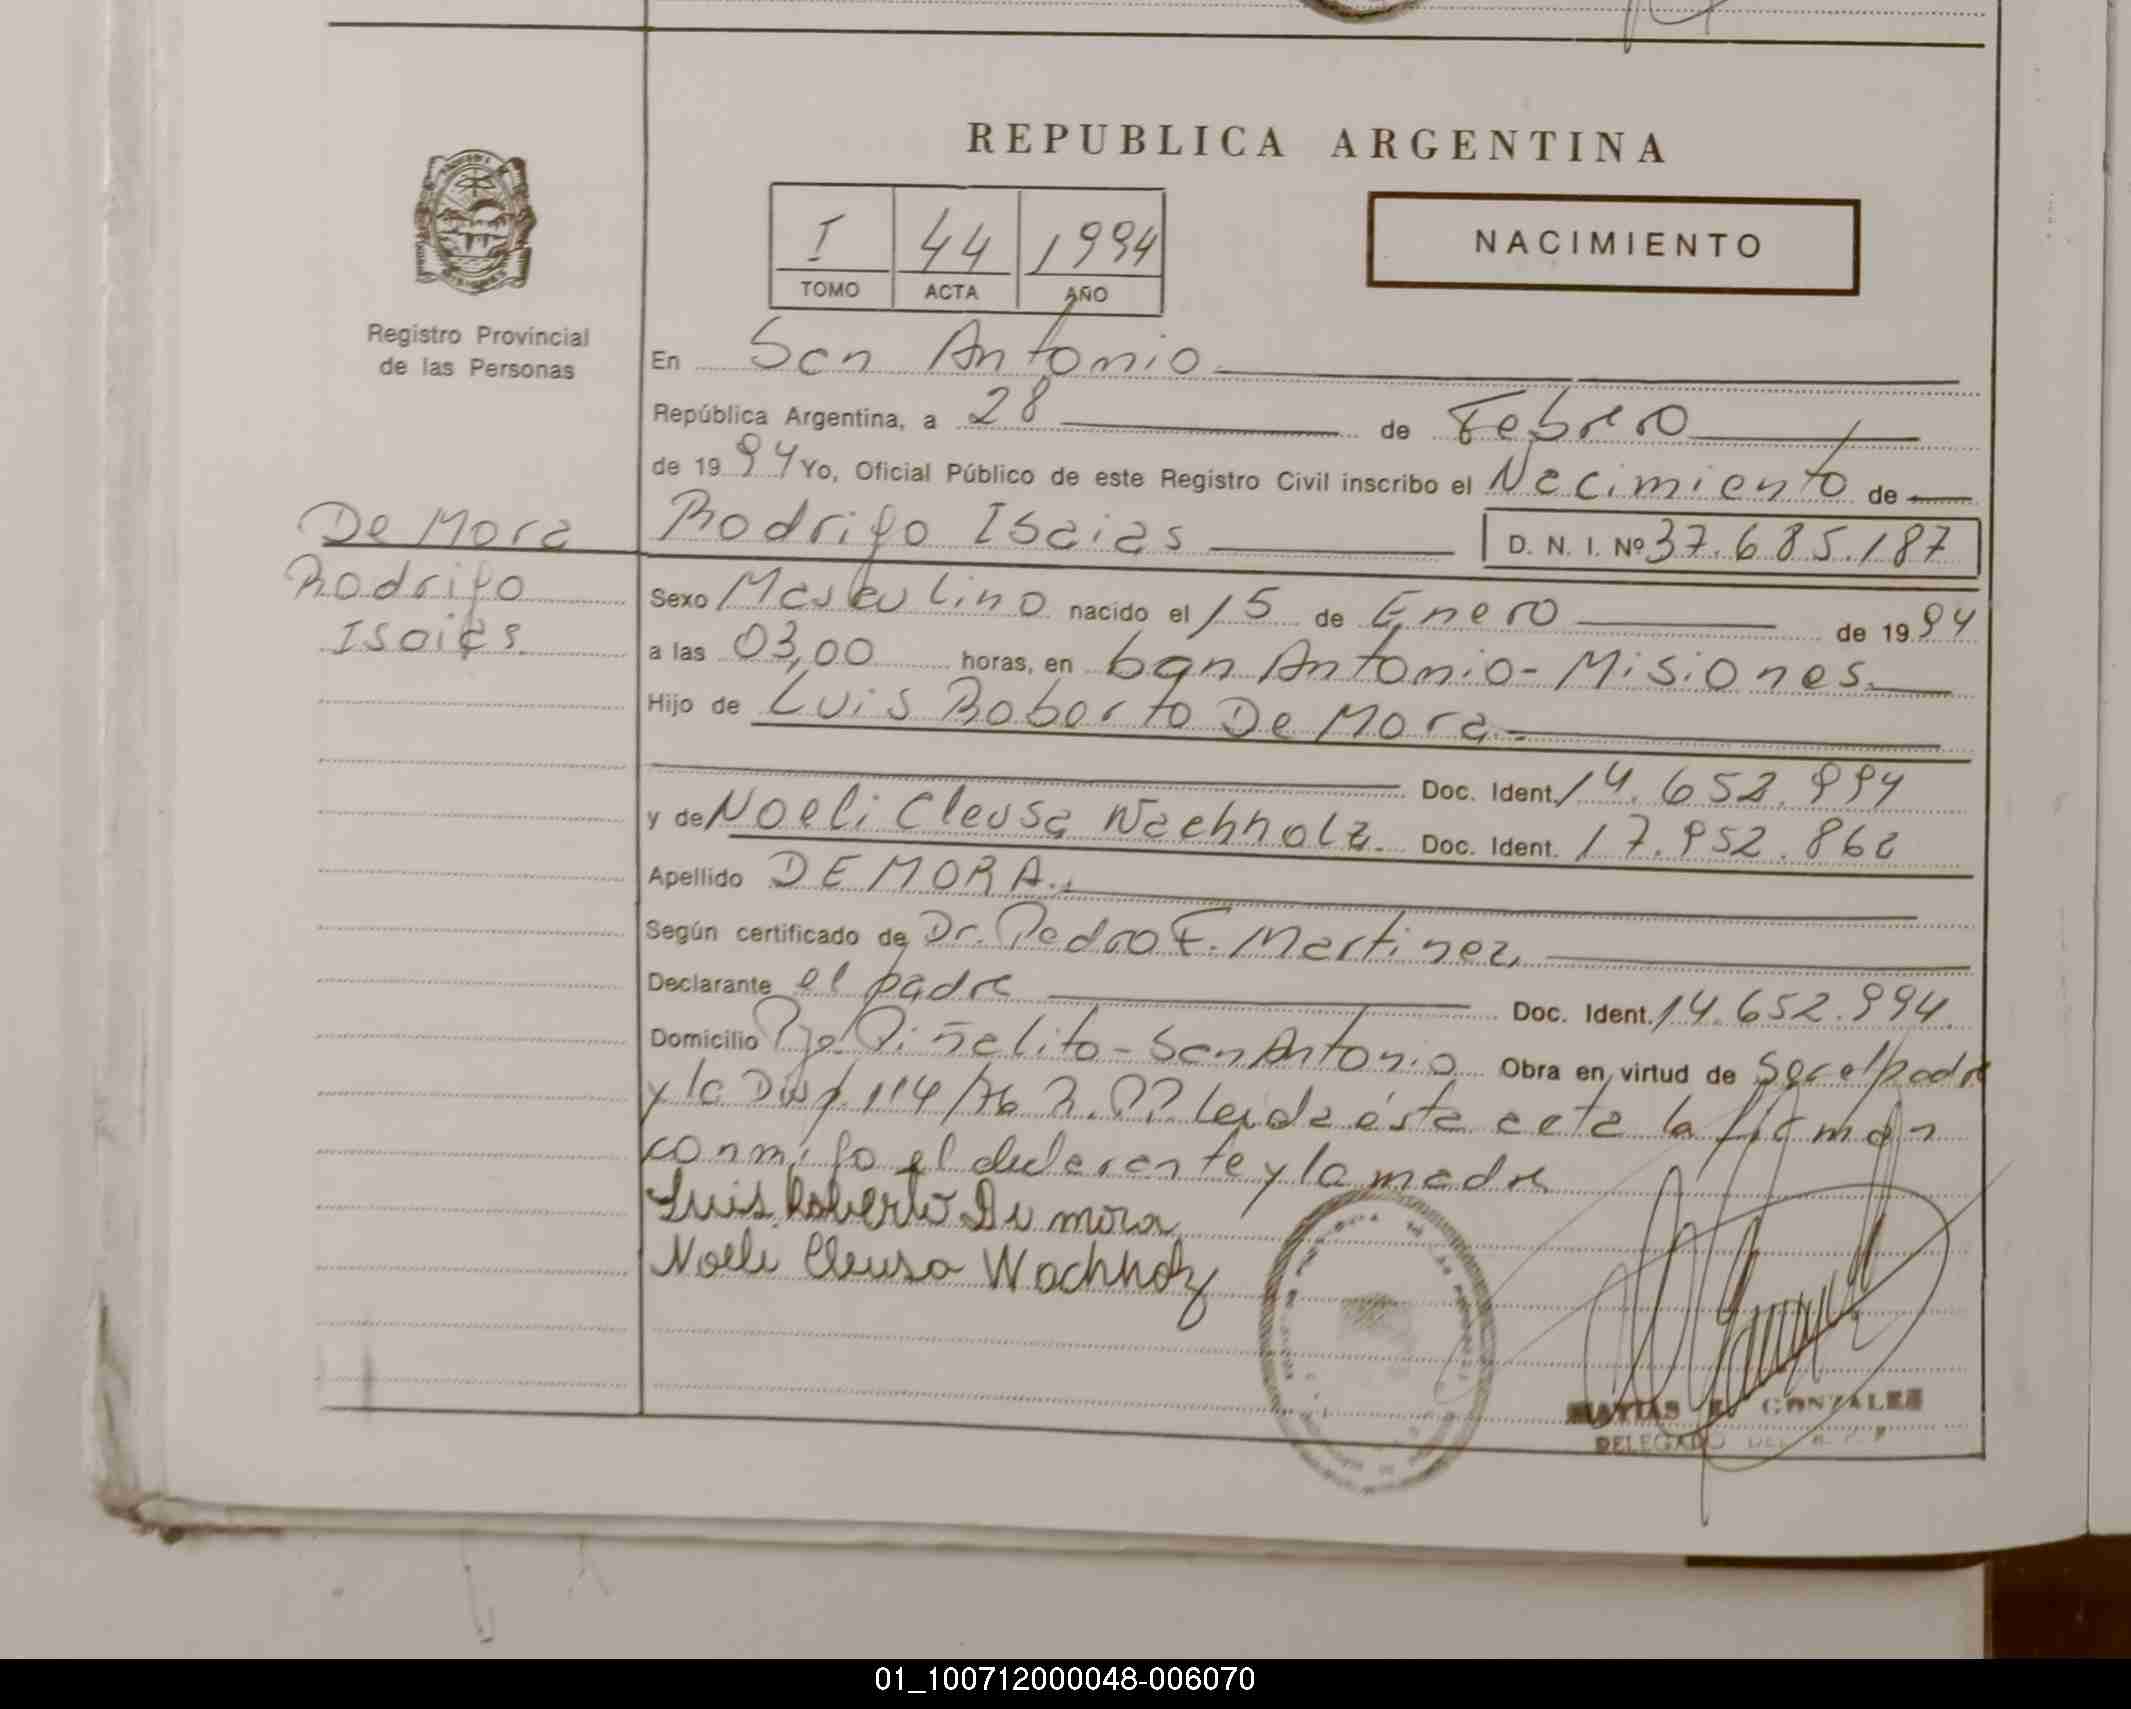 REPUBLICA ARGENTINA
I 44 1994
TOMO ACTA AÑO
NACIMIENTO
Registro Provincial
de las Personas
En San Antonio
República Argentina, a 28 de Febrero
de 1994 Yo, Oficial Público de este Registro Civil inscribo el Nacimiento de
De Mora
Rodrigo
Isaias
Rodrigo Isaias D. N. I. Nº 37.685.187
Sexo Masculino nacido el 15 de Enero de 1994
a las 03,00 horas, en San Antonio - Misiones.
Hijo de Luis Roberto De Mora.-
Doc. Ident. 14.652.994
y de Noeli Cleusa Wachholz. Doc. Ident. 17.952.862
Apellido DE MORA.
Según certificado de Dr. Pedro F. Martinez,
Declarante el padre Doc. Ident. 14.652.994.
Domicilio Pje. Piñalito - San Antonio Obra en virtud de ser el padre
y la Disp. 114/76 Leida ésta acta la firman
conmigo el declarante y la madre
Luis Roberto De mora
Noeli Cleusa Wachholz
MATIAS GONZALEZ
DELEGADO DEL
01_100712000048-006070